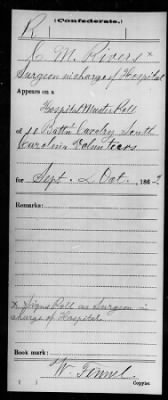 (Confederate.)
R
C. M. Rivers x
Surgeon in charge of Hospital
Appears on a
Hospital Muster Roll
of 10 Battn Cavalry South
Carolina Volunteers
for Sept. & Oct., 186 2
Remarks:
x Signs Roll as Surgeon in
charge of Hospital
Book mark:
W. Fennel
Copyist.